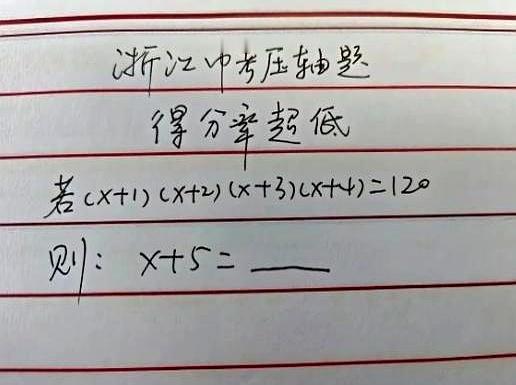 浙江中考压轴题
得分率超低
若(x+1)(x+2)(x+3)(x+4)=120
则: x+5=____